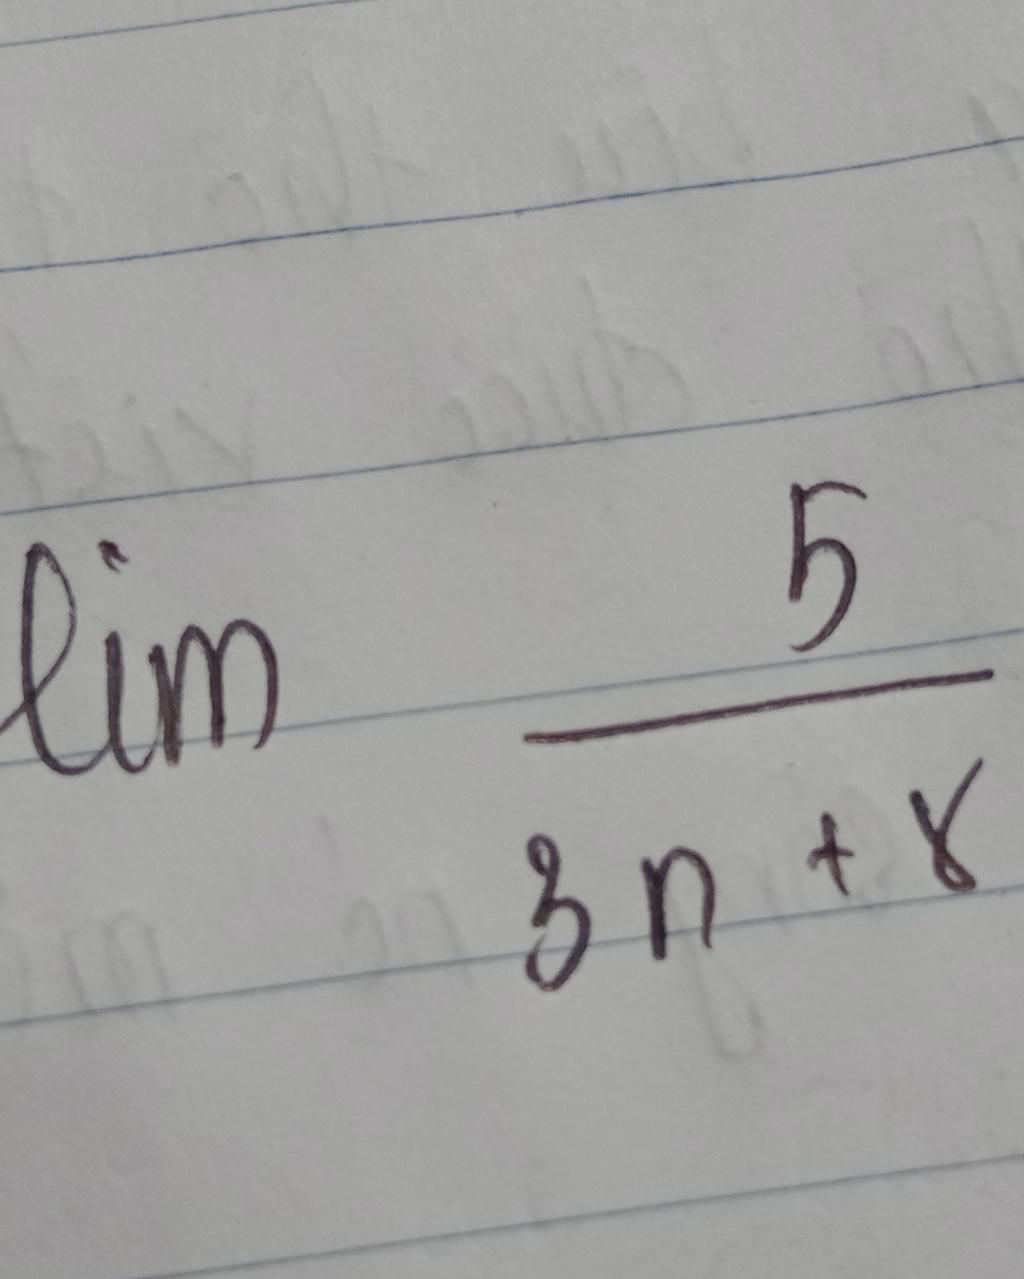 lim 5
3n + 8